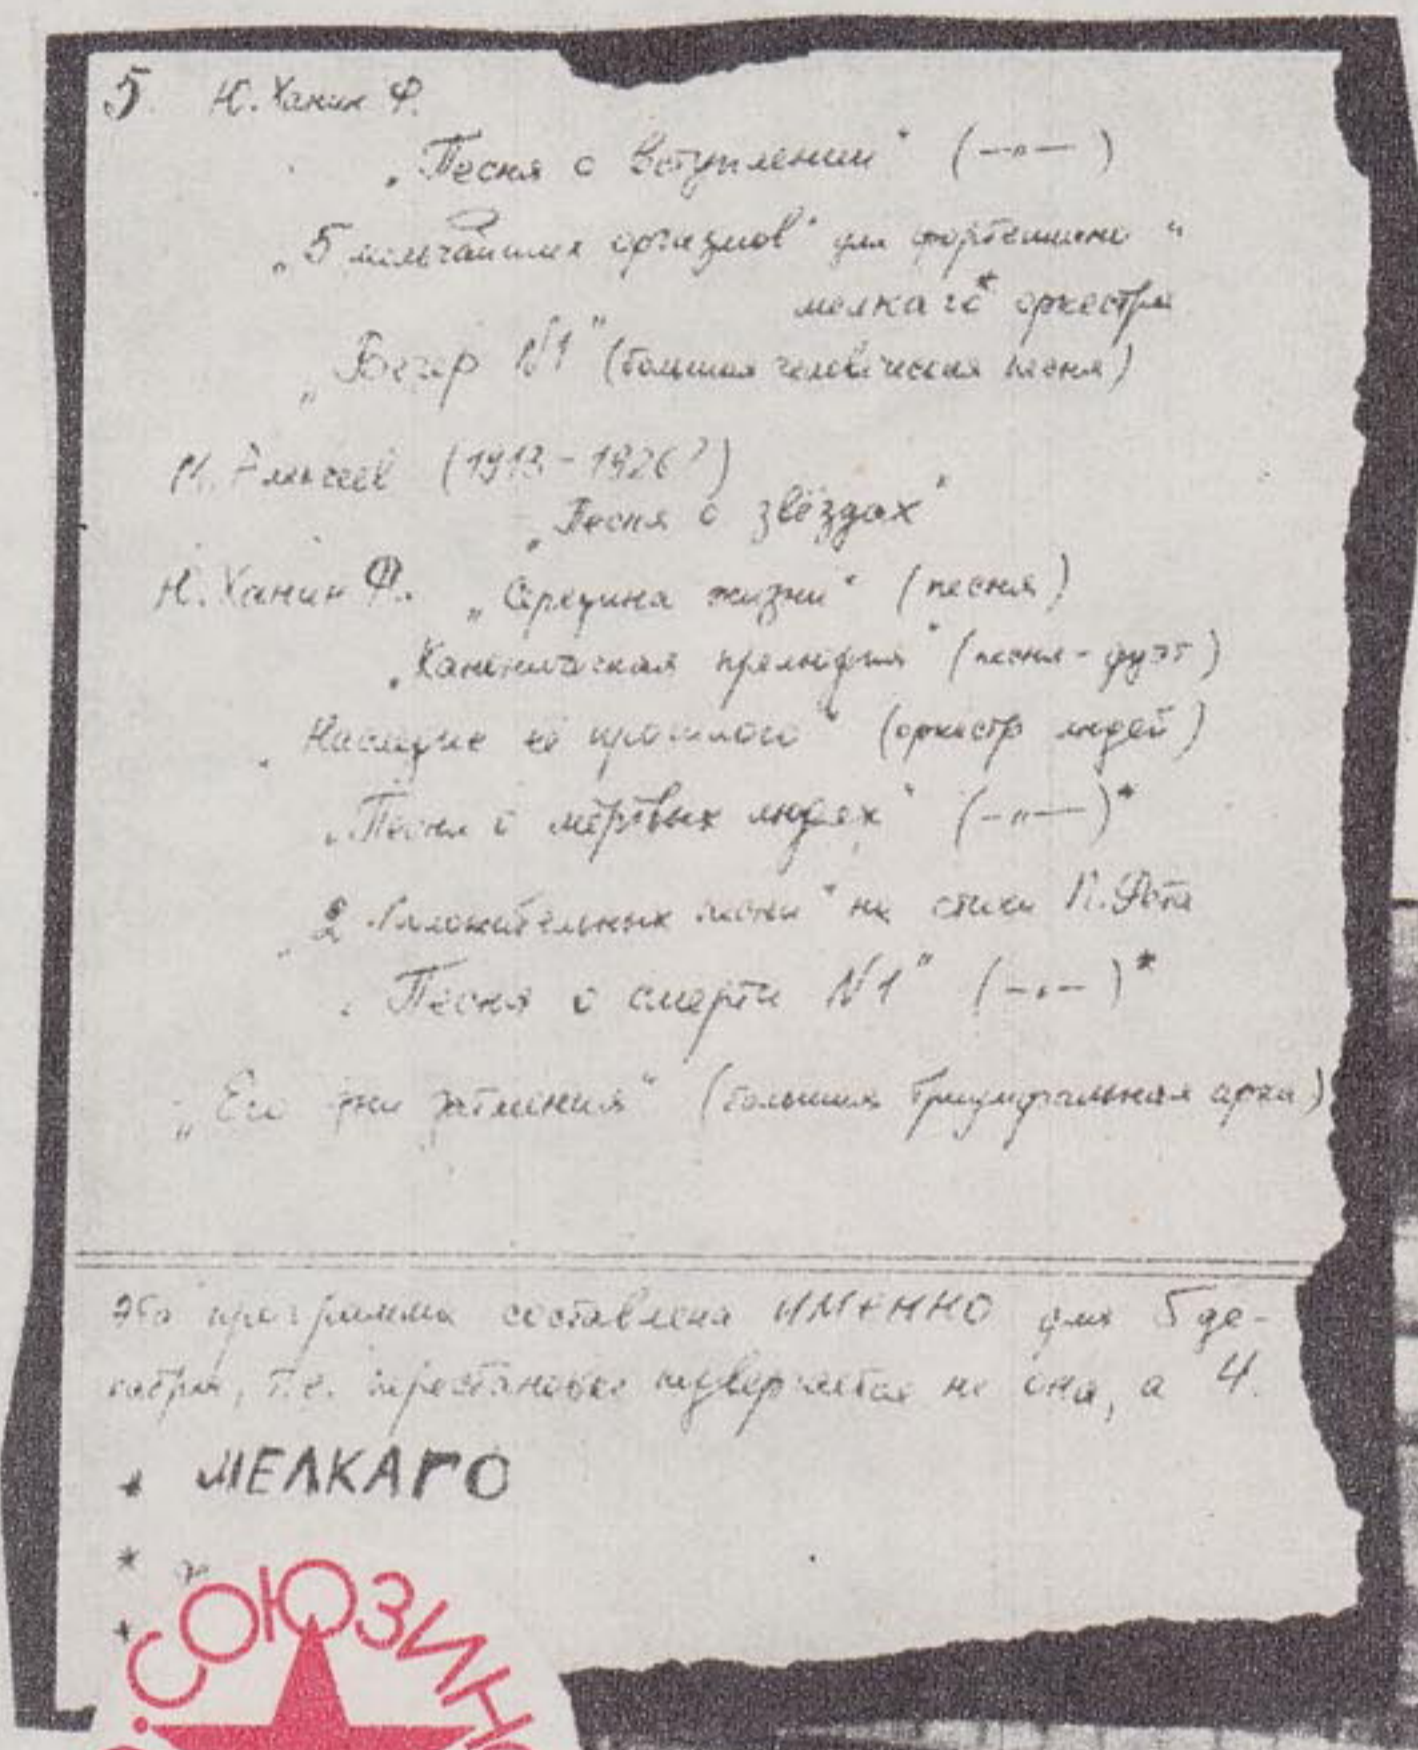 5. Ю. Ханин Ф.
„Песня о вступлении“ (—„—)
„5 мельчайших оргазмов“ для фортепиано и
мелкаго* оркестра
„Вечер №1“ (большая человеческая песня)
М. Алексеев (1913-1926?)
„Песня о звёздах“
Ю. Ханин Ф. „Середина жизни“ (песня)
„Каноническая прелюдия“ (песня-дуэт)
„Наследие её прошлого“ (оркестр людей)
„Песня о мёртвых людях“ (—„—)*
„2 Положительных песни“ на стихи П. Фета
„Песня о смерти №1“ (—„—)*
„Его дни затмения“ (большая триумфальная арка)
Эта программа составлена ИМЕННО для 5 де-
кабря, т.е. перестановке подвергается не она, а 4.
* МЕЛКАГО
*
*
СОЮЗИН